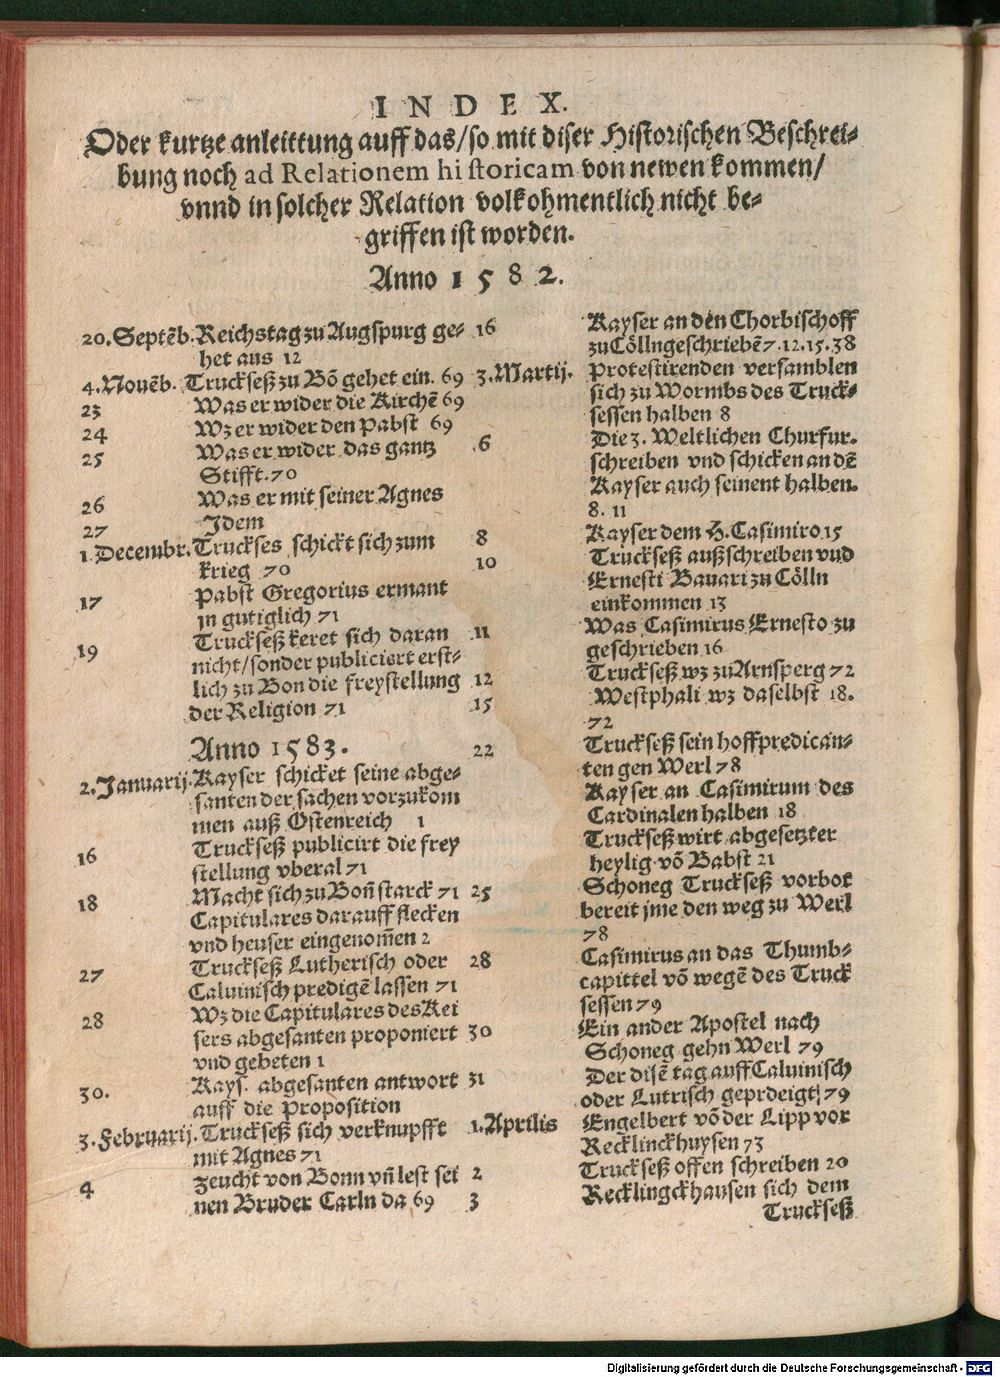 INDEX.
Oder kurtze anleittung auff das/so mit diser Historischen Beschrei-
bung noch ad Relationem historicam von newen kommen/
vnnd in solcher Relation volkohmentlich nicht be-
griffen ist worden.
Anno 1582.
20. Septẽb. Reichstag zu Augspurg ge-
het aus 12
4. Nouẽb. Truckseß zu Bõ gehet ein. 69
23 Was er wider die Kirchẽ 69
24 Wz er wider den Pabst 69
25 Was er wider das gantz
Stifft. 70
26 Was er mit seiner Agnes
27 Idem
1. Decembr. Truckses schickt sich zum
krieg 70
17 Pabst Gregorius ermant
jn gutiglich 71
19 Truckseß keret sich daran
nicht/sonder publiciert erst-
lich zu Bon die freystellung
der Religion 71
Anno 1583.
2. Januarij. Kayser schicket seine abge-
santen der sachen vorzukom
men auß Ostenreich 1
16 Truckseß publicirt die frey
stellung vberal 71
18 Macht sich zu Boñ starck 71
Capitulares darauff flecken
vnd heuser eingenom̃en 2
27 Truckseß Lutherisch oder
Caluinisch predigẽ lassen 71
28 Wz die Capitulares des Kei
sers abgesanten proponiert
vnd gebeten 1
30. Kays. abgesanten antwort
auff die Proposition
3. Februarij. Truckseß sich verknupfft
mit Agnes 71
4 zeucht von Bonn vñ lest sei
nen Bruder Carln da 69
16 Kayser an den Chorbischoff
zu Cölln geschriebẽ 7. 12. 15. 38
3. Martij. Protestirenden versamblen
sich zu Wormbs des Truck-
sessen halben 8
6 Die 3. Weltlichen Churfur.
schreiben vnd schicken an dẽ
Kayser auch seinent halben.
8. 11
8 Kayser dem H. Casimiro 15
10 Truckseß außschreiben vnd
Ernesti Bauari zu Cölln
einkommen 13
11 Was Casimirus Ernesto zu
geschrieben 16
12 Truckseß wz zu Arnsperg 72
15 Westphali wz daselbst 18.
72
22 Truckseß sein hoffpredican-
ten gen Werl 78
Kayser an Casimirum des
Cardinalen halben 18
Truckseß wirt abgesetzter
heylig võ Babst 21
25 Schoneg Truckseß vorbot
bereit jme den weg zu Werl
78
28 Casimirus an das Thumb-
capittel võ wegẽ des Truck
sessen 79
30 Ein ander Apostel nach
Schoneg gehn Werl 79
31 Der disẽ tag auff Caluinisch
oder Lutrisch geprdeigt; 79
1. Aprilis Engelbert võ der Lipp vor
Recklinckhuysen 73
2 Truckseß offen schreiben 20
3 Recklingckhausen sich dem
Truckseß
Digitalisierung gefördert durch die Deutsche Forschungsgemeinschaft - DFG